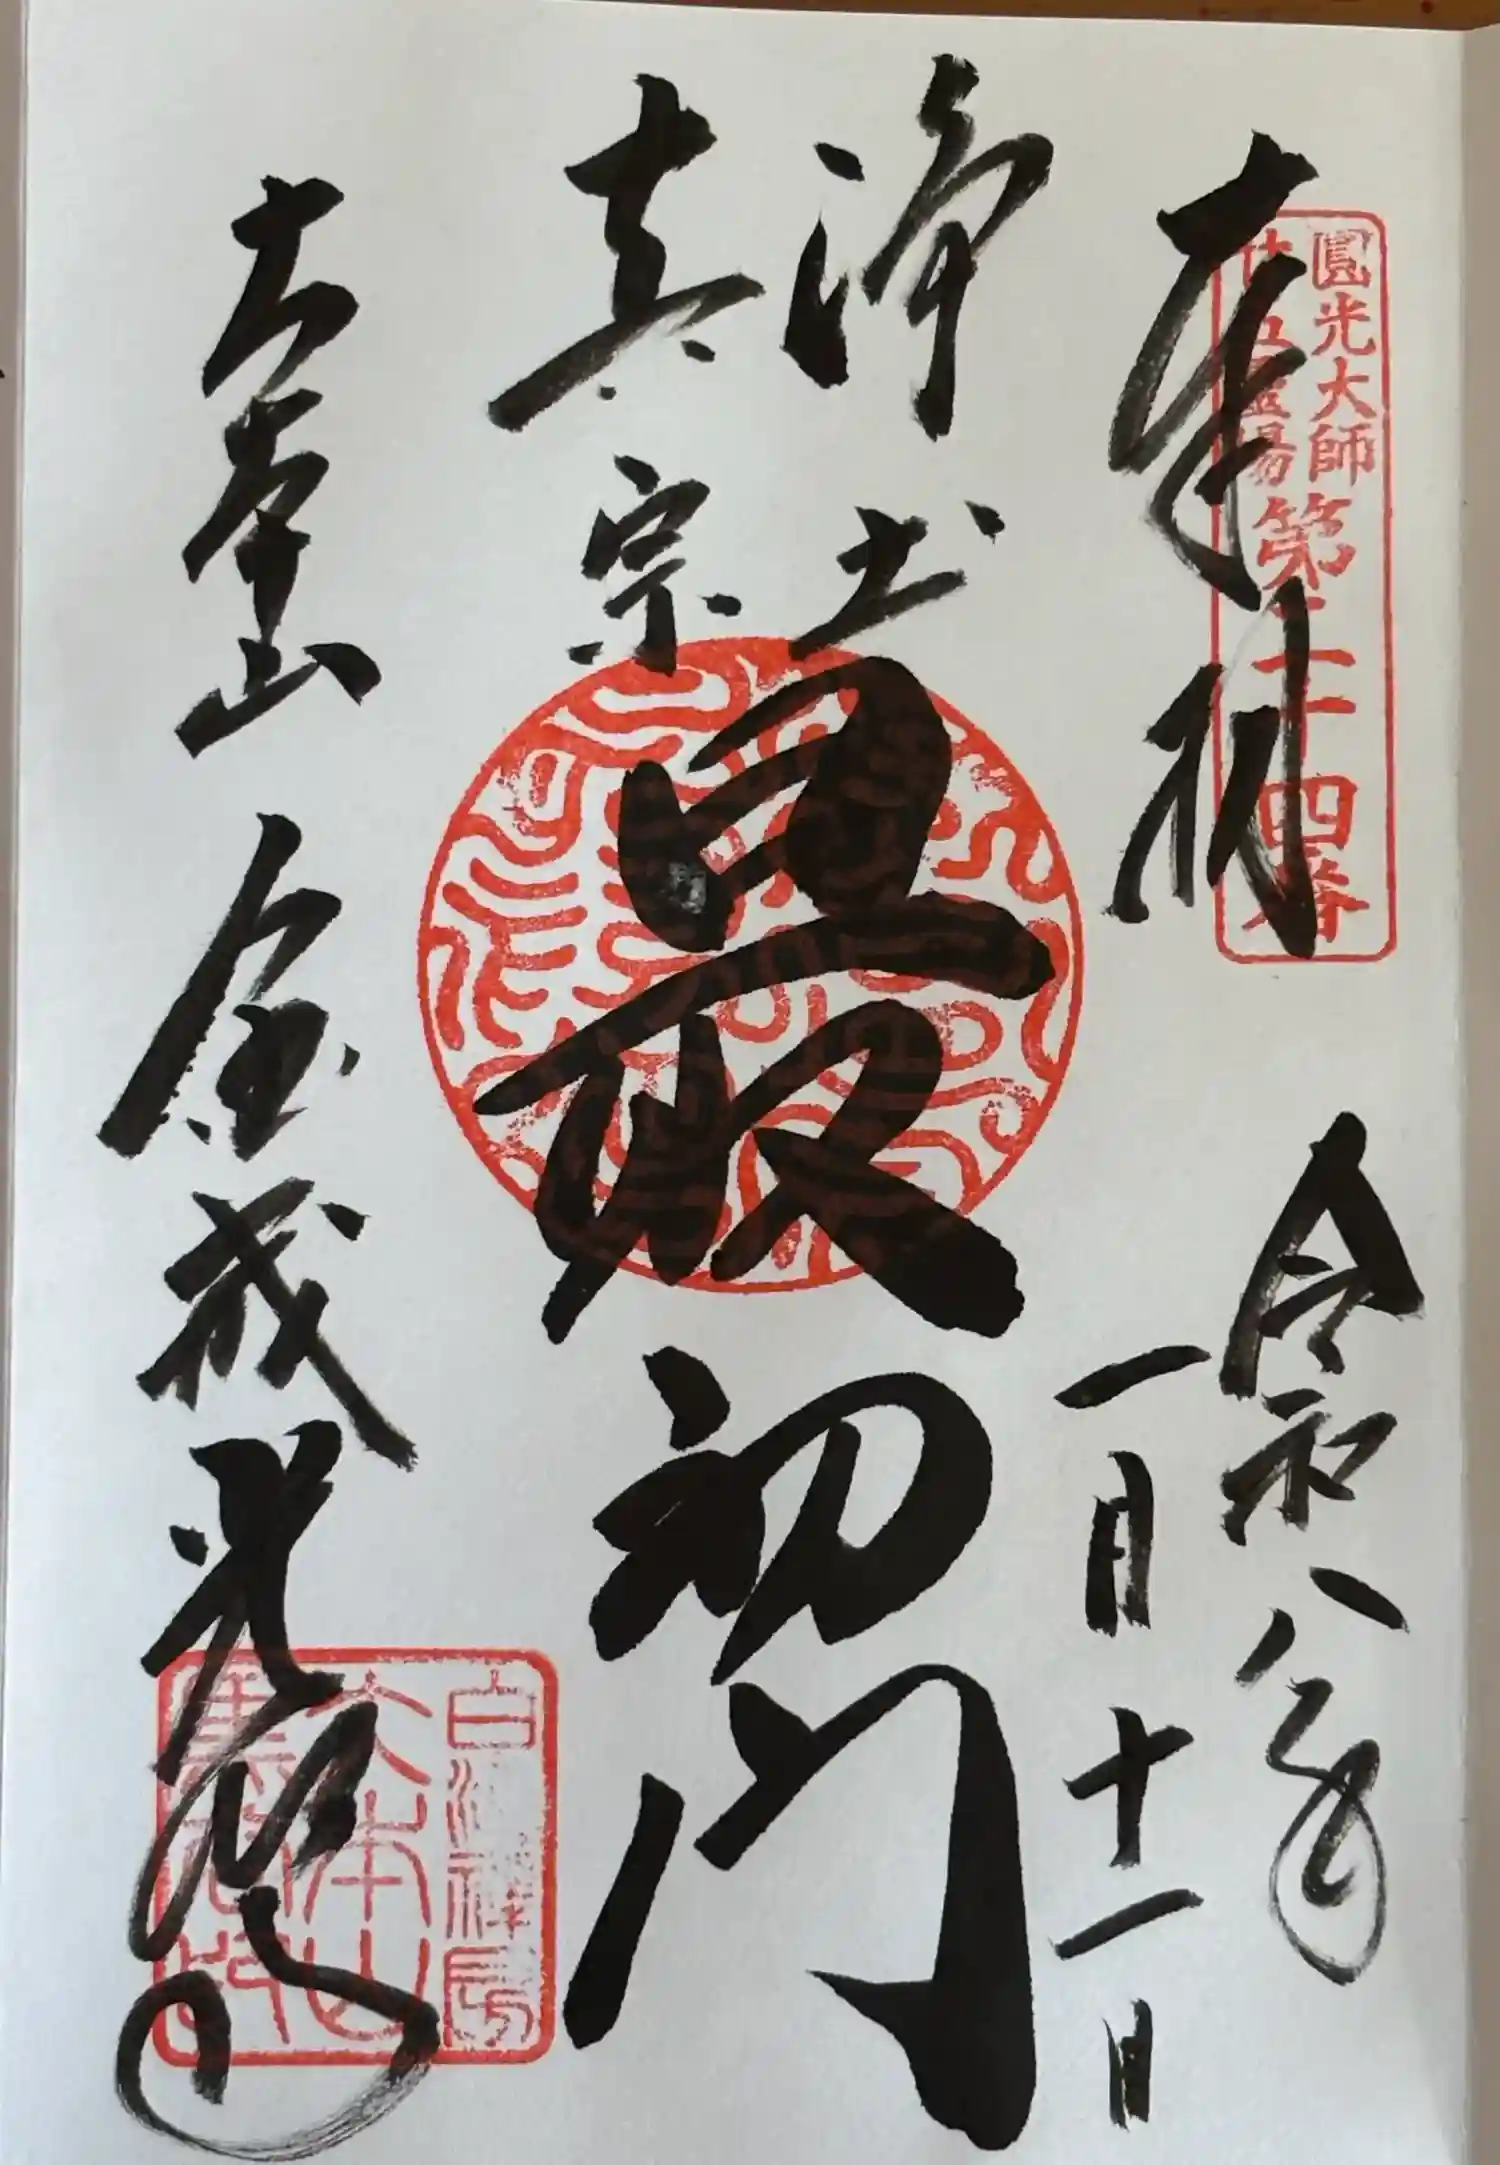 奉拝
圓光大師
廿五霊場第二十四番
令和八年
一月十一日
浄土
真宗
最初門
大本山 金戒光明寺
白河禅房
大本山